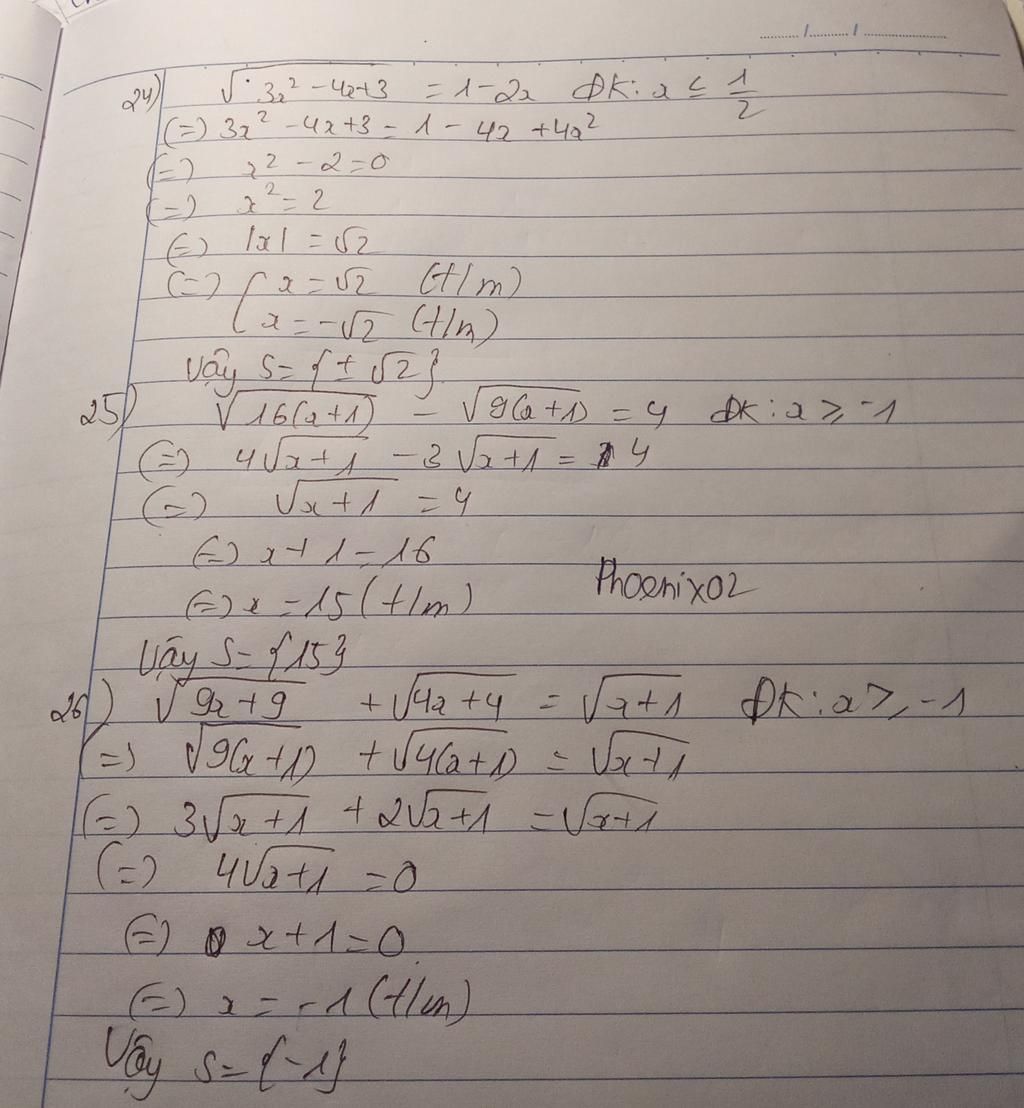 24) √3x² - 4x + 3 = 1 - 2x ĐK: x ≤ 1/2
(=) 3x² - 4x + 3 = 1 - 4x + 4x²
(=) x² - 2 = 0
(=) x² = 2
(=) |x| = √2
(=) [ x = √2 (t/m)
x = -√2 (t/m)
Vậy S = {± √2}
25) √16(x+1) - √9(x+1) = 4 ĐK: x ≥ -1
(=) 4√x+1 - 3√x+1 = 4
(=) √x+1 = 4
(=) x + 1 = 16
(=) x = 15 (t/m)
Phoenix02
Vậy S = {15}
26) √9x+9 + √4x+4 = √x+1 ĐK: x ≥ -1
(=) √9(x+1) + √4(x+1) = √x+1
(=) 3√x+1 + 2√x+1 = √x+1
(=) 4√x+1 = 0
(=) x + 1 = 0
(=) x = -1 (t/m)
Vậy S = {-1}